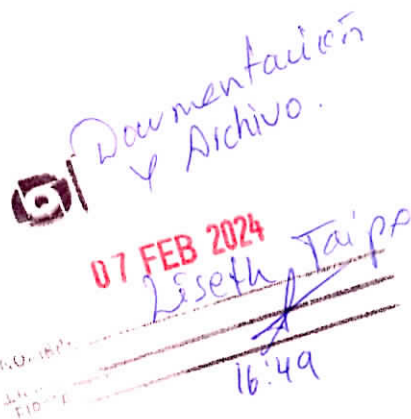 Documentación
y Archivo.
07 FEB 2024
Liseth Taipe
16:49